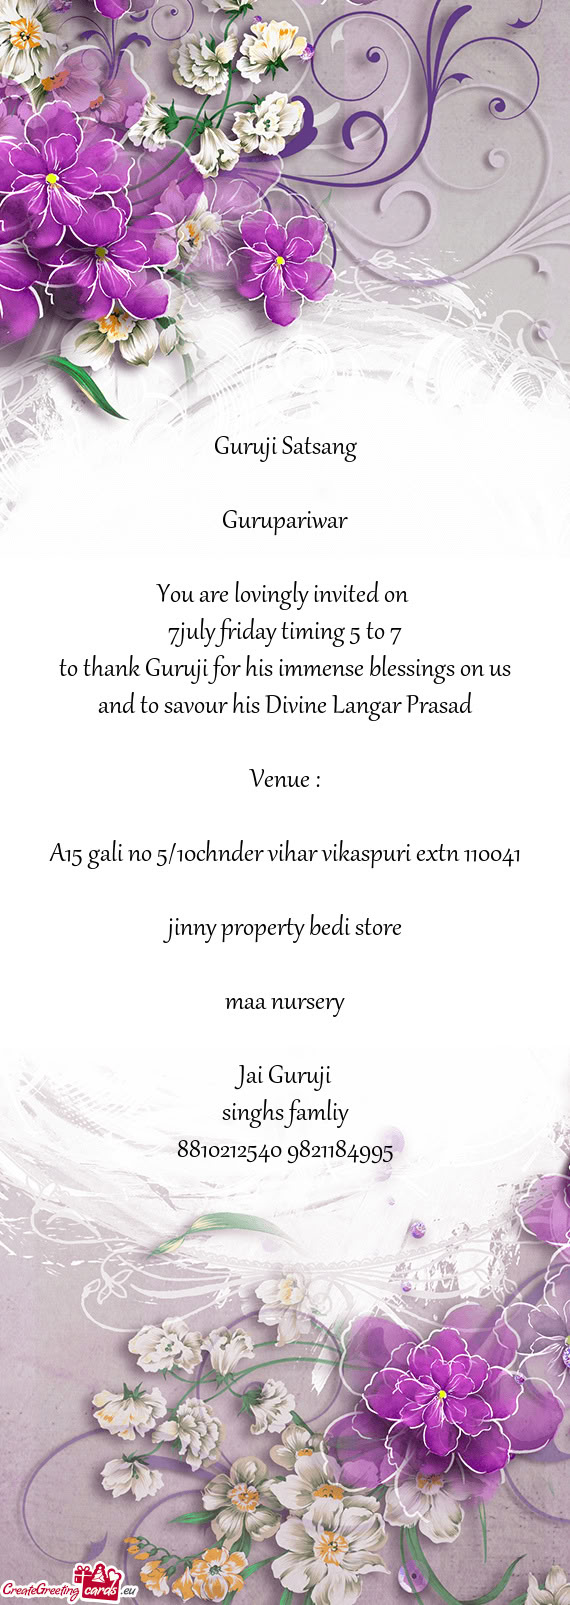 Guruji Satsang
Gurupariwar
You are lovingly invited on
7july friday timing 5 to 7
to thank Guruji for his immense blessings on us
and to savour his Divine Langar Prasad
Venue :
A15 gali no 5/10chnder vihar vikaspuri extn 110041
jinny property bedi store
maa nursery
Jai Guruji
singhs famliy
8810212540 9821184995
CreateGreeting cards .eu